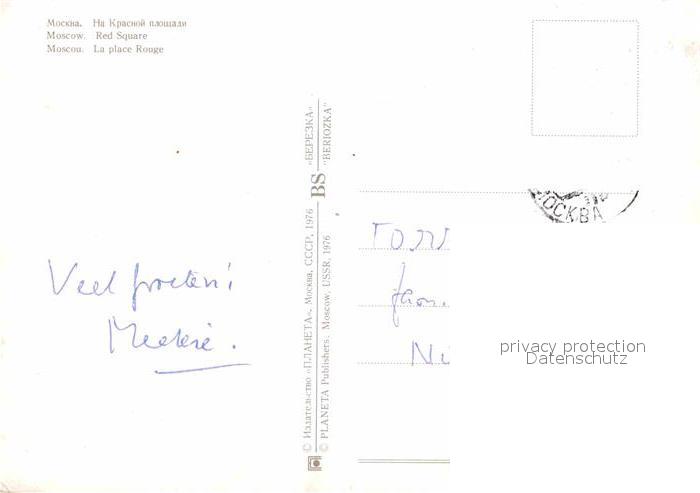 Москва. На Красной площади
Moscow. Red Square
Moscou. La place Rouge
Veel groeten!
© Издательство «ПЛАНЕТА». Москва, СССР, 1976 BS «БЕРЕЗКА»
© PLANETA Publishers. Moscow, USSR, 1976 "BERIOZKA"
МОСКВА
Ni
privacy protection
Datenschutz